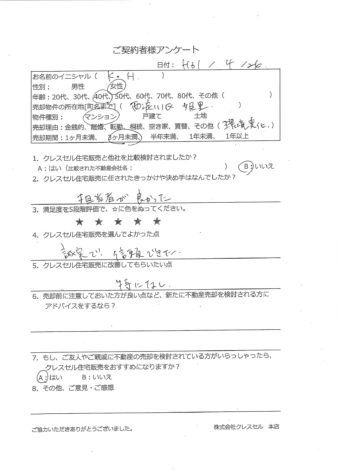 ご契約者様アンケート
日付: H31 / 4 /26
お名前のイニシャル ( K・H )
性別: 男性 女性
年齢:20代、30代、40代、50代、60代、70代、80代、その他 ( )
売却物件の所在地(町名まで) (
物件種別: マンション 戸建て 土地
売却理由:金銭的、離婚、転勤、相続、空き家、買替、その他 (
売却期間:1ヶ月未満、3ヶ月未満、半年未満、1年未満、1年以上
1. クレスセル住宅販売と他社を比較検討されましたか?
A:はい (比較された不動産会社名: ) B:いいえ
2. クレスセル住宅販売に任されたきっかけや決め手はなんでしたか?
担当者が良かった
3. 満足度を5段階評価で、☆に色をぬってください。
★ ★ ★ ★ ★
4. クレスセル住宅販売を選んでよかった点
誠実で、信頼できた。
5. クレスセル住宅販売に改善してもらいたい点
特になし
6. 売却前に注意しておいた方が良い点など、新たに不動産売却を検討される方に
アドバイスをするなら?
7. もし、ご友人やご親戚に不動産の売却を検討されている方がいらっしゃったら、
クレスセル住宅販売をおすすめになりますか?
A:はい B:いいえ
8. その他、ご意見・ご感想
ご協力いただきありがとうございました。 株式会社クレスセル 本店